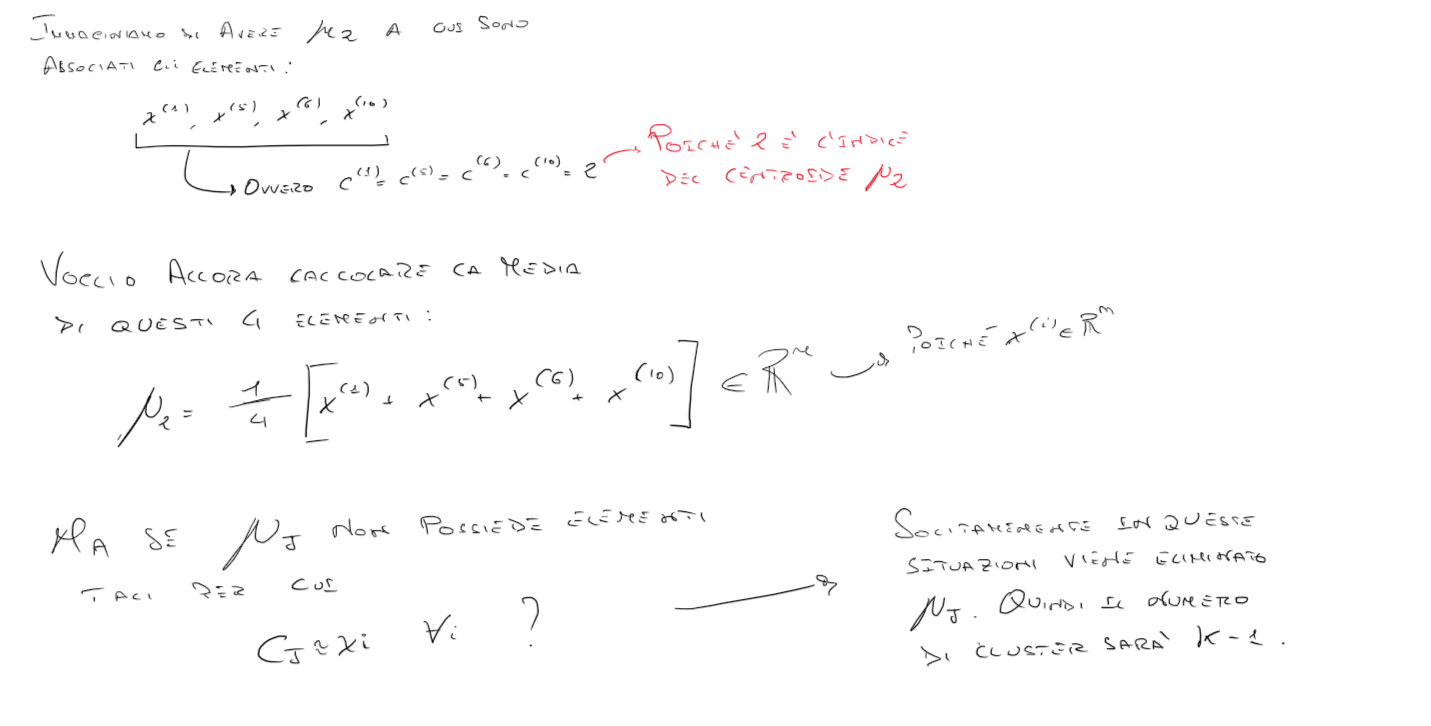 IMMAGINIAMO DI AVERE μ2 A CUI SONO
ASSOCIATI GLI ELEMENTI:
x^(1), x^(5), x^(6), x^(10)
OVVERO c^(1) = c^(5) = c^(6) = c^(10) = 2
POICHÈ 2 È L'INDICE
DEL CENTROIDE μ2
VOGLIO ALLORA CALCOLARE LA MEDIA
DI QUESTI 4 ELEMENTI:
μ2 = 1/4 [x^(1) + x^(5) + x^(6) + x^(10)] ∈ ℝ^n
POICHÉ x^(i) ∈ ℝ^n
MA SE μJ NON POSSIEDE ELEMENTI
TALI PER CUI
CJ ≈ xi ∀i ?
SOLITAMENENTE IN QUESTE
SITUAZIONI VIENE ELIMINATO
μJ. QUINDI IL NUMERO
DI CLUSTER SARÀ K-1.